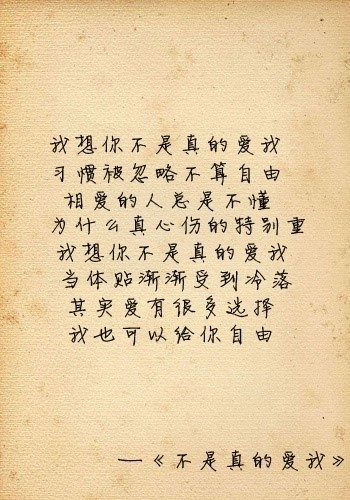 我想你不是真的爱我
习惯被忽略不算自由
相爱的人总是不懂
为什么真心伤的特别重
我想你不是真的爱我
当体贴渐渐受到冷落
其实爱有很多选择
我也可以给你自由
—《不是真的爱我》